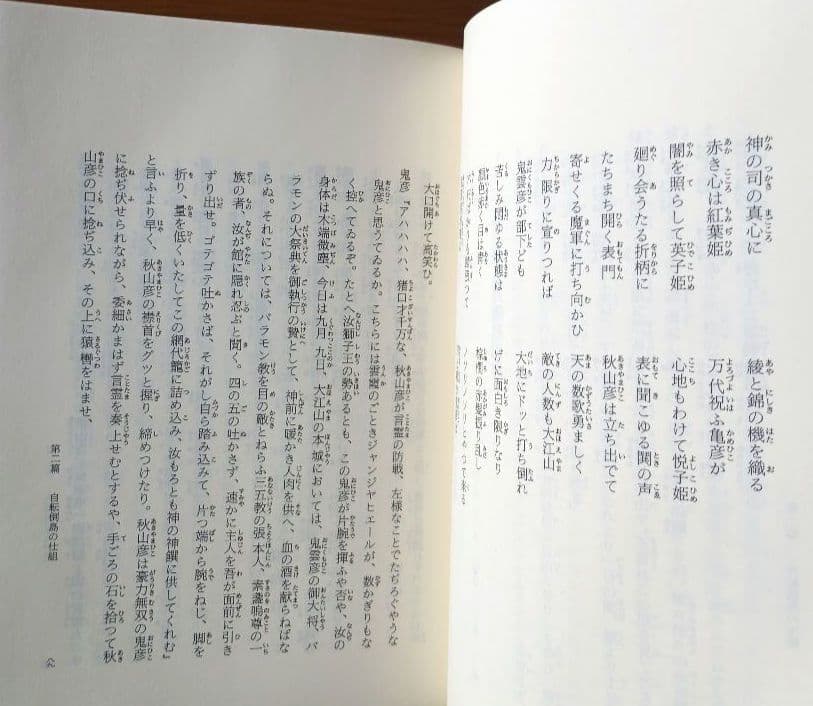 神の司の真心に　綾と錦の機を織る
赤き心は紅葉姫　万代祝ふ亀彦が
闇を照らして英子姫　心地もわけて悦子姫
廻り会うたる折柄に　表に聞こゆる鬨の声
たちまち開く表門　秋山彦は立ち出でて
寄せくる魔軍に打ち向かひ　天の数歌勇ましく
力限りに宣りつれば　敵の人数も大江山
鬼雲彦が部下ども　大地にドッと打ち倒れ
苦しみ悶ゆる状態は　げに面白き限りなり
く目は青く　振り乱し
ノソリノソリとやつて来る
大口開けて高笑ひ。
鬼彦『アハハハハ、猪口才千万な、秋山彦が言霊の防戦、左様なことでたぢろぐやうな
鬼彦と思うてゐるか。こちらには雲霞のごときジャンジヤヒエールが、数かぎりもな
く控へてゐるぞ。たとへ汝獅子王の勢あるとも、この鬼彦が片腕を揮ふや否や、汝の
身体は木端微塵、今日は九月九日、大江山の本城においては、鬼雲彦の御大将、バ
ラモンの大祭典を御執行の贄として、神前に暖かき人肉を供へ、血の酒を献らねばな
らぬ。それについては、バラモン教を目の敵とねらふ三五教の張本人、素盞嗚尊の一
族の者、汝が館に隠れ忍ぶと聞く。四の五の吐かさず、速かに主人を吾が面前に引き
ずり出せ。ゴテゴテ吐かさば、それがし自ら踏み込みて、片つ端から腕をねじ、脚を
折り、量を低くいたしてこの網代籠に詰め込み、汝もろとも神の神饌に供してくれむ』
と言ふより早く、秋山彦の襟首をグッと握り、締めつけたり。秋山彦は豪力無双の鬼彦
に捻ぢ伏せられながら、委細かまはず言霊を奏上せむとするや、手ごろの石を拾つて秋
山彦の口に捻ぢ込み、その上に猿轡をはませ、
第二篇　自転倒島の仕組